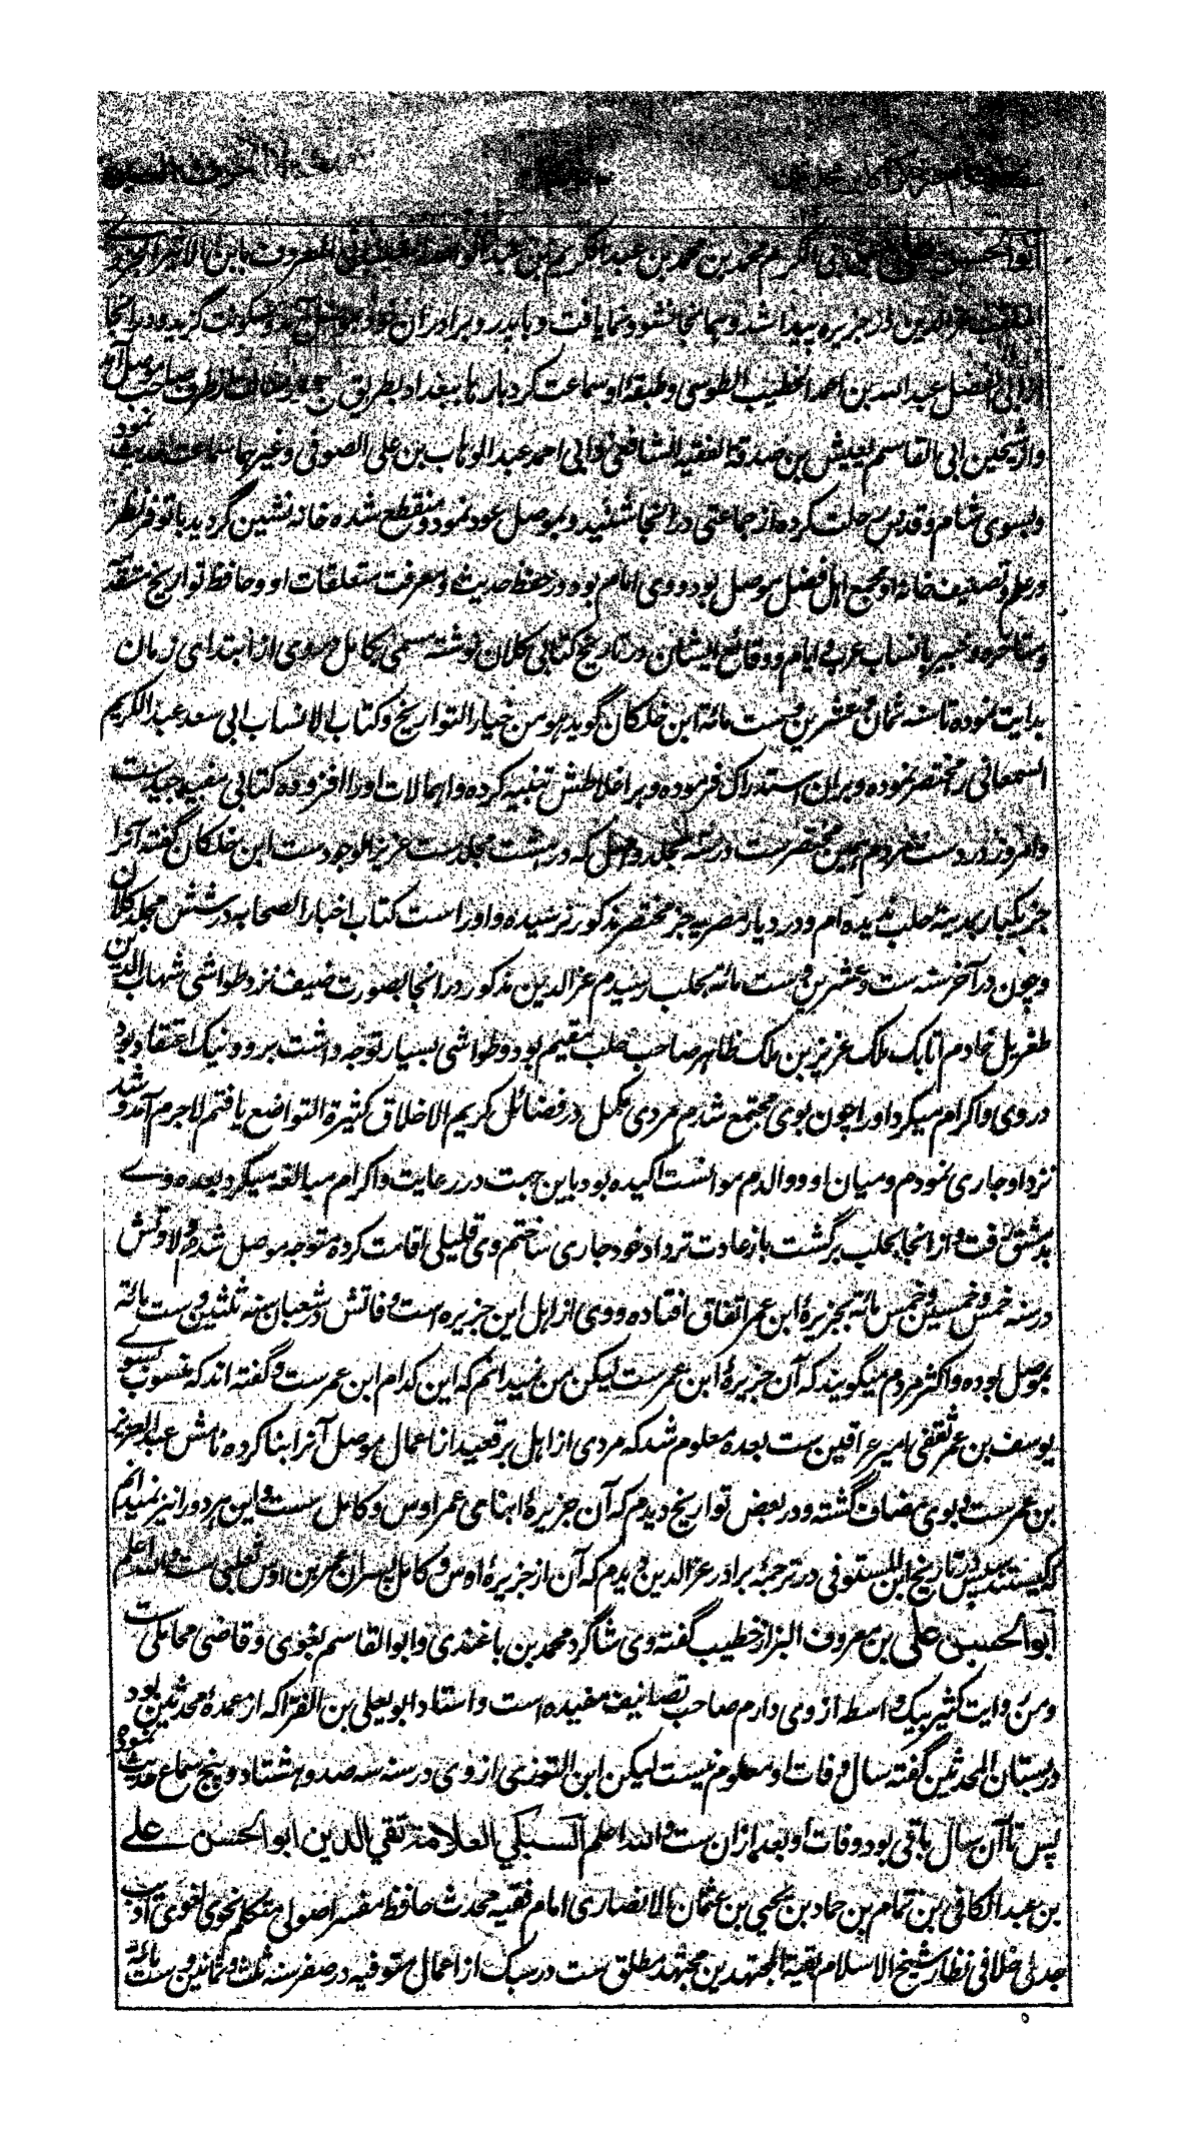 ابو الحسن علی بن ابی الکرم محمد بن محمد بن عبد الکریم بن عبد الواحد الشیبانی المعروف بابن الاثیر الجزری
الملقب عز الدین در جزیره پیدا شد و همانجا نشو و نما یافت و با پدر و برادران خود بموصل آمده سکونت گزید و در انجا
از ابی الفضل عبد الله بن احمد الخطیب الطوسی و طبقهٔ او سماعت کرد بارها ببغداد بطریق حج و رسالت از طرف صاحب موصل آمد
و از شیخین ابی القاسم یعیش بن صدقة الفقیه الشافعی و ابی احمد عبد الوهاب بن علی الصوفی و غیرهما سماعت حدیث نمود
و بسوی شام و قدس رحلت کرده از جماعتی در انجا شنید و بموصل عود نمود و منقطع شده خانه نشین گردید با توفر نظر
در علم و تصنیف خانهٔ او مجمع اهل فضل موصل بود و وی امام بود در حفظ حدیث و معرفت متعلقات او و حافظ تواریخ متقدمه
و متأخره و خبیر بانساب عرب و ایام و وقائع ایشان در تاریخ کتابی کلان نوشته مسمی بکامل در وی از ابتدای زمان
بدایت نموده تا سنه ثمان و عشرین و ست مائة ابن خلکان گوید هو من خیار التواریخ و کتاب الانساب ابی سعد عبد الکریم
السمعانی را مختصر نموده و بر ان استدراک فرموده و بر اغلاطش تنبیه کرده و اهمالات او را افزوده کتابی مفید جید ست
و امروز در دست مردم همین مختصر ست در سه مجلد و اصل که در هشت مجلد ست عزیز الوجود ست ابن خلکان گفته آنرا
جز یکبار بمدینه حلب ندیده ام و در دیار مصریه جز مختصر مذکور نرسیده و او راست کتاب اخبار الصحابه در شش مجلد کلان
و چون در آخر سنه ست و عشرین و ست مائة بحلب رسیدم عز الدین مذکور در انجا بصورت ضیف نزد طواشی شهاب الدین
طغریل خادم اتابک ملک عزیز بن ملک ظاهر صاحب حلب مقیم بود و طواشی بسیار توجه داشت برو و نیک اعتقاد بود
در وی و اکرام میکرد او را چون بوی مجتمع شدم مردی مکمل در فضائل کریم الاخلاق کثیرة التواضع یافتم لاجرم آمد و شد
نزد او جاری نمودم و میان او و والدم موانست اکیده بود باین جهت در رعایت و اکرام مبالغه میکرد بعده وے
بدمشق رفت و از انجا بحلب برگشت باز عادت ترداد خود جاری ساختم وی قلیلی اقامت کرده متوجه موصل شد و ولادتش
در سنه خمس و خمسین و خمس مائة بجزیرهٔ ابن عمر اتفاق افتاده و وی از اهل این جزیره است و فاتش در شعبان سنه ثلثین و ست مائة
بموصل بوده و اکثر مردم میگویند که آن جزیرهٔ ابن عمر ست لیکن من نمیدانم که این کدام ابن عمر ست و گفته اند که منسوب بسوے
یوسف بن عمر ثقفی امیر عراقین ست بعده معلوم شد که مردی از اهل برقعید از اعمال موصل آنرا بنا کرده نامش عبد العزیز
بن عمر ست و بوی مضاف گشته و در بعض تواریخ دیدم که آن جزیرهٔ ابناء عمر اوس و کامل ست و این هر دو را نیز نمیدانم
که کیستند پس در تاریخ ابن المستوفی در ترجمهٔ برادر عز الدین دیدم که آن از جزیرهٔ اوس و کامل پسران عمر بن اوس تغلبی ست والله اعلم
ابو الحسن علی بن معروف البزاز خطیب گفته وی شاگرد محمد بن باغندی و ابو القاسم بغوی و قاضی محاملی ست
و من روایت کثیر بیک واسطه از وی دارم صاحب تصانیف مفیده است و استاد ابو یعلی بن الفرا که از عمدهٔ محدثین بود
در بستان المحدثین گفته سال وفات او معلوم نیست لیکن ابن التوزی از وی در سنه سه صد و هشتاد و پنج سماع حدیث نموده
پس تا آن سال باقی بود و وفات او بعد از ان ست والله اعلم السبکی العلامة تقی الدین ابو الحسن علے
بن عبد الکافی بن تمام بن حماد بن یحیی بن عثمان الانصاری امام فقیه محدث حافظ مفسر اصولی متکلم نحوی لغوی ادیب
جدلی خلافی نظار شیخ الاسلام بقیة المجتهدین مجتهد مطلق ست در سبک از اعمال منوفیه در صفر سنه ثلث و ثمانین و ست مائة